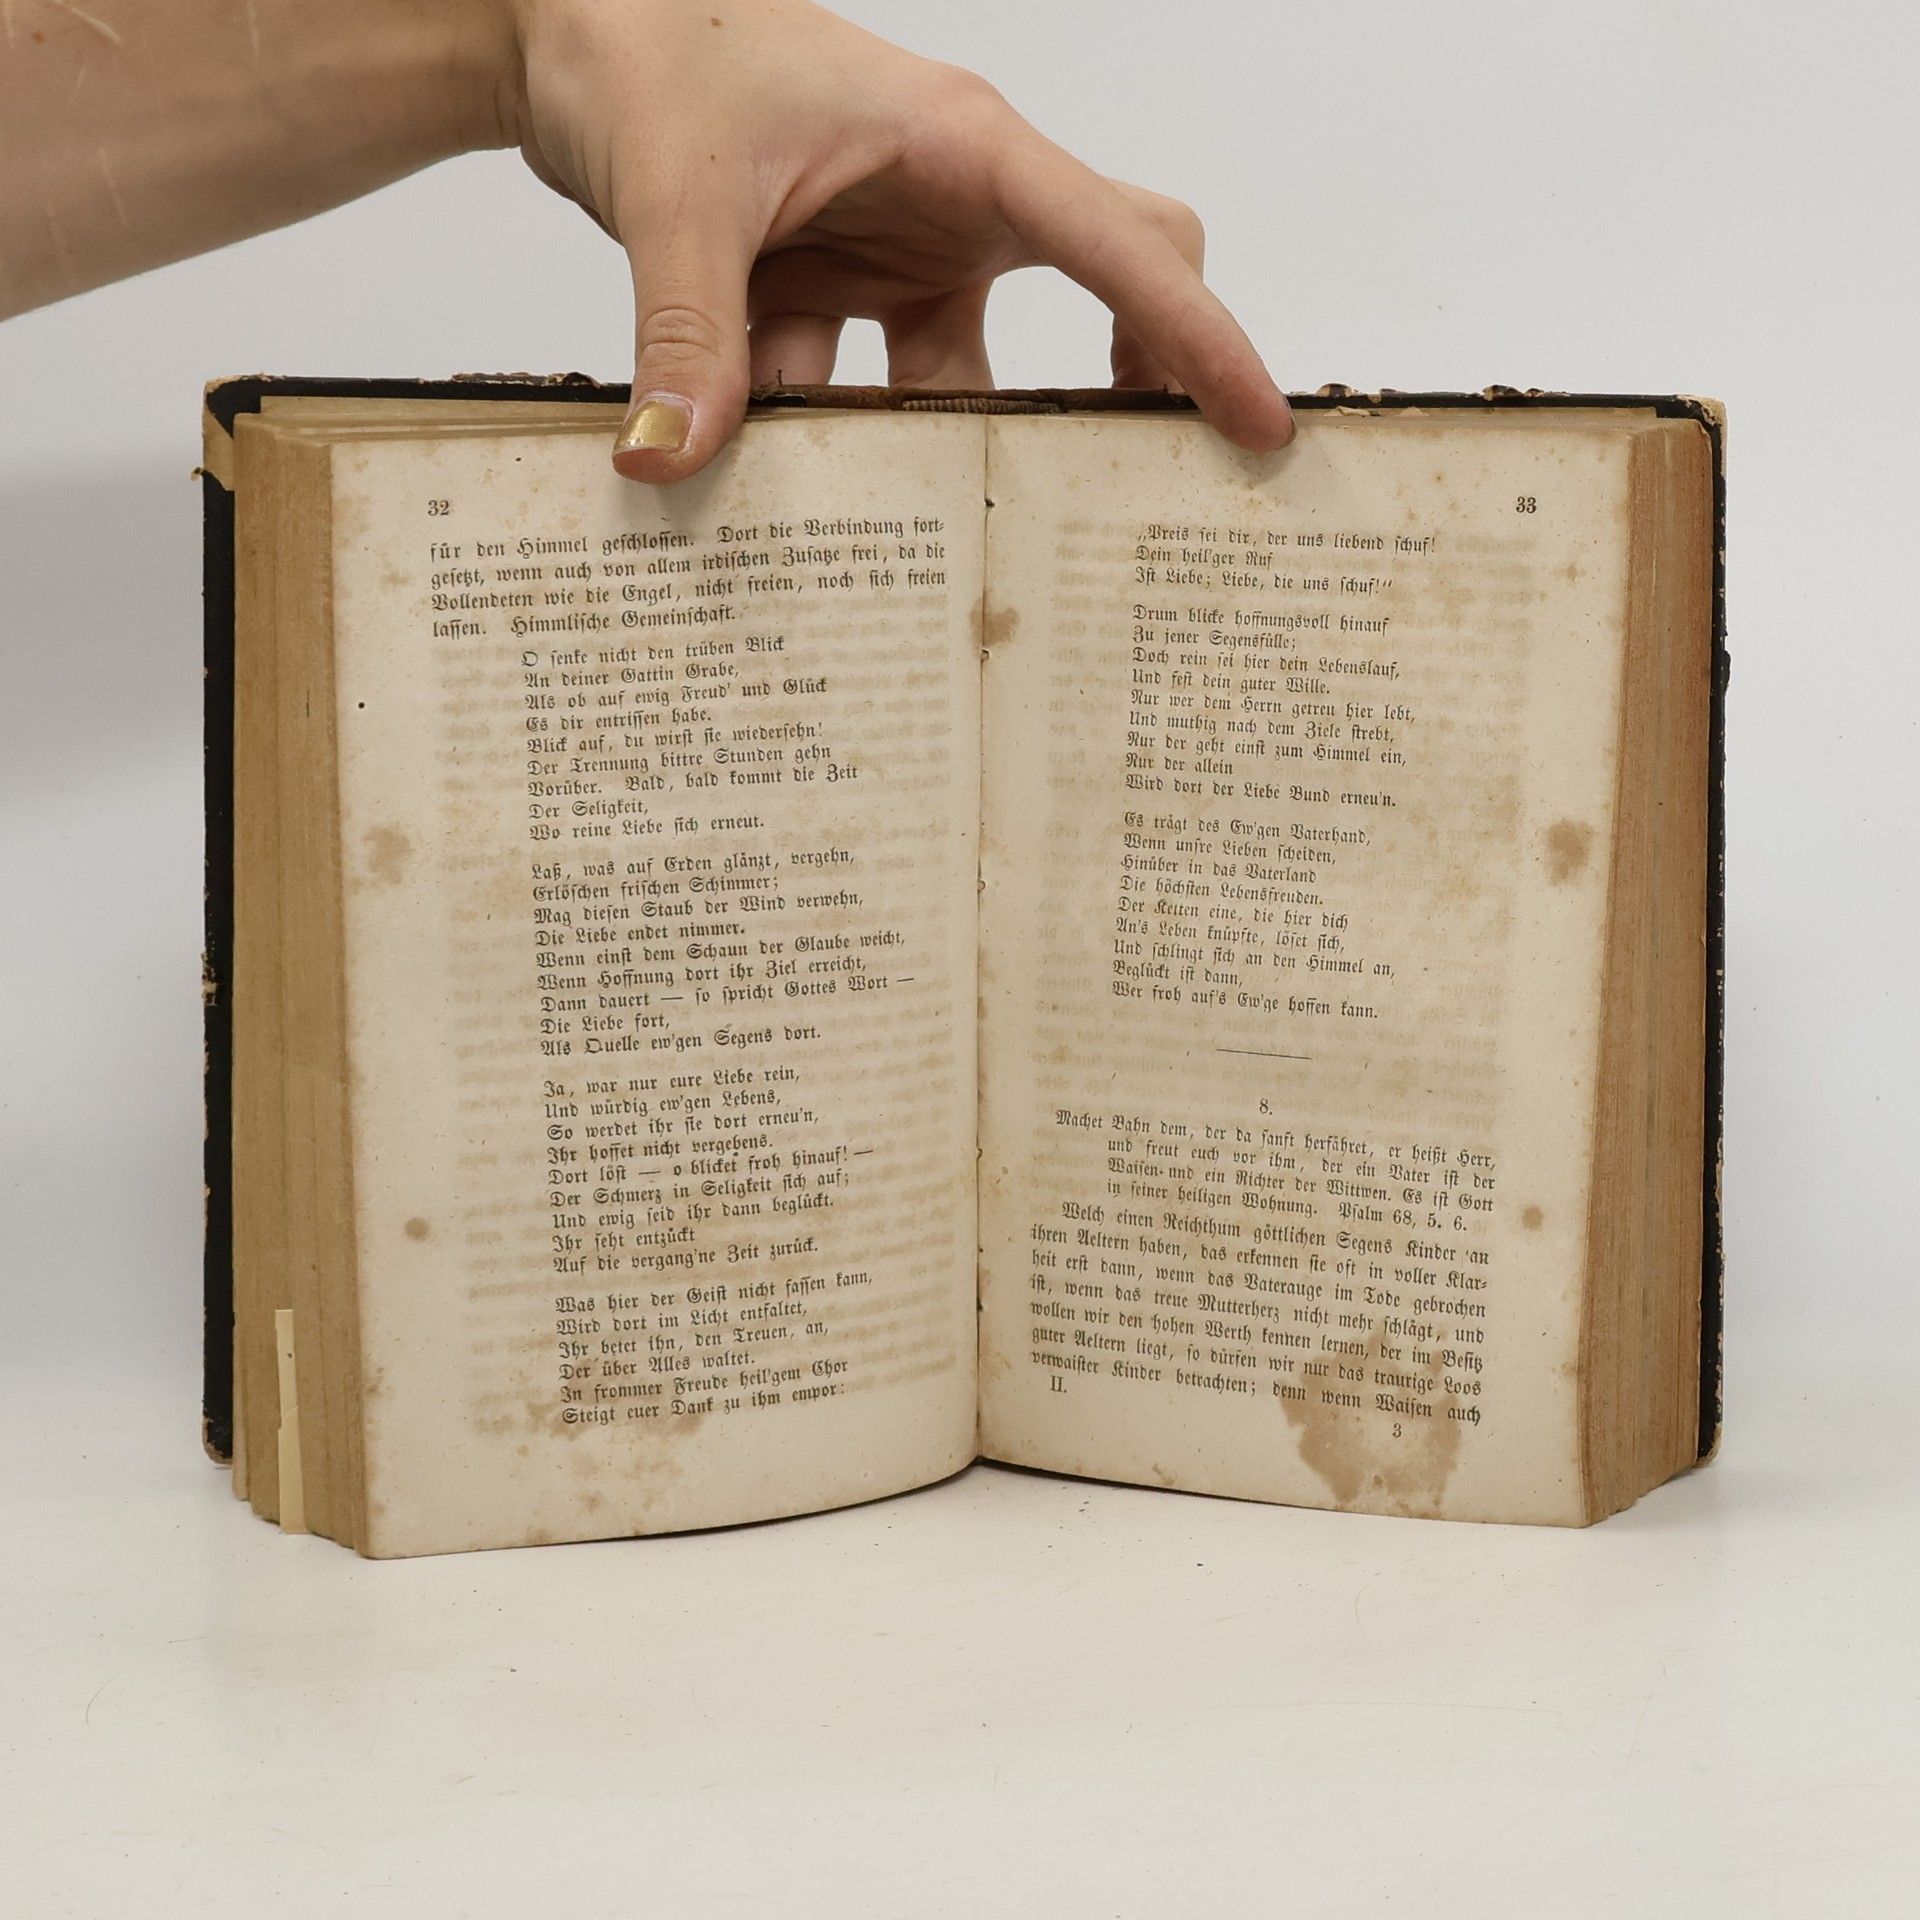 32
für den Himmel geschlossen. Dort die Verbindung fort-
gesetzt, wenn auch von allem irdischen Zusatze frei, da die
Vollendeten wie die Engel, nicht freien, noch sich freien
lassen. Himmlische Gemeinschaft.
O senke nicht den trüben Blick
An deiner Gattin Grabe,
Als ob auf ewig Freud' und Glück
Es dir entrissen habe.
Blick auf, du wirst sie wiedersehn!
Der Trennung bittre Stunden gehn
Vorüber. Bald, bald kommt die Zeit
Der Seligkeit,
Wo reine Liebe sich erneut.
Laß, was auf Erden glänzt, vergehn,
Erlöschen frischen Schimmer;
Mag diesen Staub der Wind verwehn,
Die Liebe endet nimmer.
Wenn einst dem Schaun der Glaube weicht,
Wenn Hoffnung dort ihr Ziel erreicht,
Dann dauert — so spricht Gottes Wort —
Die Liebe fort,
Als Quelle ew'gen Segens dort.
Ja, war nur eure Liebe rein,
Und würdig ew'gen Lebens,
So werdet ihr sie dort erneu'n,
Ihr hoffet nicht vergebens.
Dort löst — o blicket froh hinauf! —
Der Schmerz in Seligkeit sich auf;
Und ewig seid ihr dann beglückt.
Ihr seht entzückt
Auf die vergang'ne Zeit zurück.
Was hier der Geist nicht fassen kann,
Wird dort im Licht entfaltet,
Ihr betet ihn, den Treuen, an,
Der über Alles waltet.
In frommer Freude heil'gem Chor
Steigt euer Dank zu ihm empor:
33
„Preis sei dir, der uns liebend schuf!
Dein heil'ger Ruf
Ist Liebe; Liebe, die uns schuf!“
Drum blicke hoffnungsvoll hinauf
Zu jener Segensfülle;
Doch rein sei hier dein Lebenslauf,
Und fest dein guter Wille.
Nur wer dem Herrn getreu hier lebt,
Und muthig nach dem Ziele strebt,
Nur der geht einst zum Himmel ein,
Nur der allein
Wird dort der Liebe Bund erneu'n.
Es trägt des Ew'gen Vaterhand,
Wenn unsre Lieben scheiden,
Hinüber in das Vaterland
Die höchsten Lebensfreuden.
Der Ketten eine, die hier dich
An's Leben knüpfte, löset sich,
Und schlingt sich an den Himmel an,
Beglückt ist dann,
Wer froh auf's Ew'ge hoffen kann.
8.
Machet Bahn dem, der da sanft herfähret, er heißt Herr,
und freut euch vor ihm, der ein Vater ist der
Waisen und ein Richter der Wittwen. Es ist Gott
in seiner heiligen Wohnung. Psalm 68, 5. 6.
Welch einen Reichthum göttlichen Segens Kinder an
ihren Aeltern haben, das erkennen sie oft in voller Klar-
heit erst dann, wenn das Vaterauge im Tode gebrochen
ist, wenn das treue Mutterherz nicht mehr schlägt, und
wollen wir den hohen Werth kennen lernen, der im Besitz
guter Aeltern liegt, so dürfen wir nur das traurige Loos
verwaister Kinder betrachten; denn wenn Waisen auch
II.
3